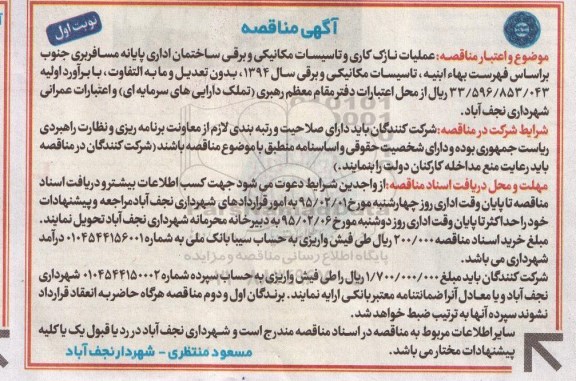 آگهی مناقصه
نوبت اول
موضوع و اعتبار مناقصه: عملیات نازک کاری و تاسیسات مکانیکی و برقی ساختمان اداری پایانه مسافربری جنوب
براساس فهرست بهاء ابنیه ، تاسیسات مکانیکی و برقی سال ۱۳۹۴، بدون تعدیل و ما به التفاوت، با برآورد اولیه
۳۳/۵۹۶/۸۵۳/۰۴۳ ریال از محل اعتبارات دفتر مقام معظم رهبری (تملک دارایی های سرمایه ای) و اعتبارات عمرانی
شهرداری نجف آباد.
شرایط شرکت در مناقصه: شرکت کنندگان باید دارای صلاحیت و رتبه بندی لازم از معاونت برنامه ریزی و نظارت راهبردی
ریاست جمهوری بوده و دارای شخصیت حقوقی و اساسنامه منطبق با موضوع مناقصه باشند (شرکت کنندگان در مناقصه
باید رعایت منع مداخله کارکنان دولت را بنمایند.)
مهلت و محل دریافت اسناد مناقصه: از واجدین شرایط دعوت می شود جهت کسب اطلاعات بیشتر و دریافت اسناد
مناقصه تا پایان وقت اداری روز چهارشنبه مورخ ۹۵/۰۲/۰۱ به امور قراردادهای شهرداری نجف آباد مراجعه و پیشنهادات
خود را حداکثر تا پایان وقت اداری روز دوشنبه مورخ ۹۵/۰۲/۰۶ به دبیرخانه محرمانه شهرداری نجف آباد تحویل نمایند.
مبلغ خرید اسناد مناقصه ۲۰۰/۰۰۰ ریال طی فیش واریزی به حساب سیبا بانک ملی به شماره ۰۱۰۴۵۴۴۱۵۶۰۰۱ درآمد
شهرداری می باشد.
شرکت کنندگان باید مبلغ ۱/۷۰۰/۰۰۰/۰۰۰ ریال را طی فیش واریزی به حساب سپرده شماره ۰۱۰۴۵۴۴۱۵۰۰۰۲ شهرداری
نجف آباد و یا معادل آنرا ضمانتنامه معتبر بانکی ارایه نمایند. برندگان اول و دوم مناقصه هرگاه حاضر به انعقاد قرارداد
نشوند سپرده آنها به ترتیب ضبط خواهد شد.
سایر اطلاعات مربوط به مناقصه در اسناد مناقصه مندرج است و شهرداری نجف آباد در رد یا قبول یک یا کلیه
پیشنهادات مختار می باشد.
مسعود منتظری - شهردار نجف آباد
پایگاه اطلاع رسانی مناقصه و مزایده